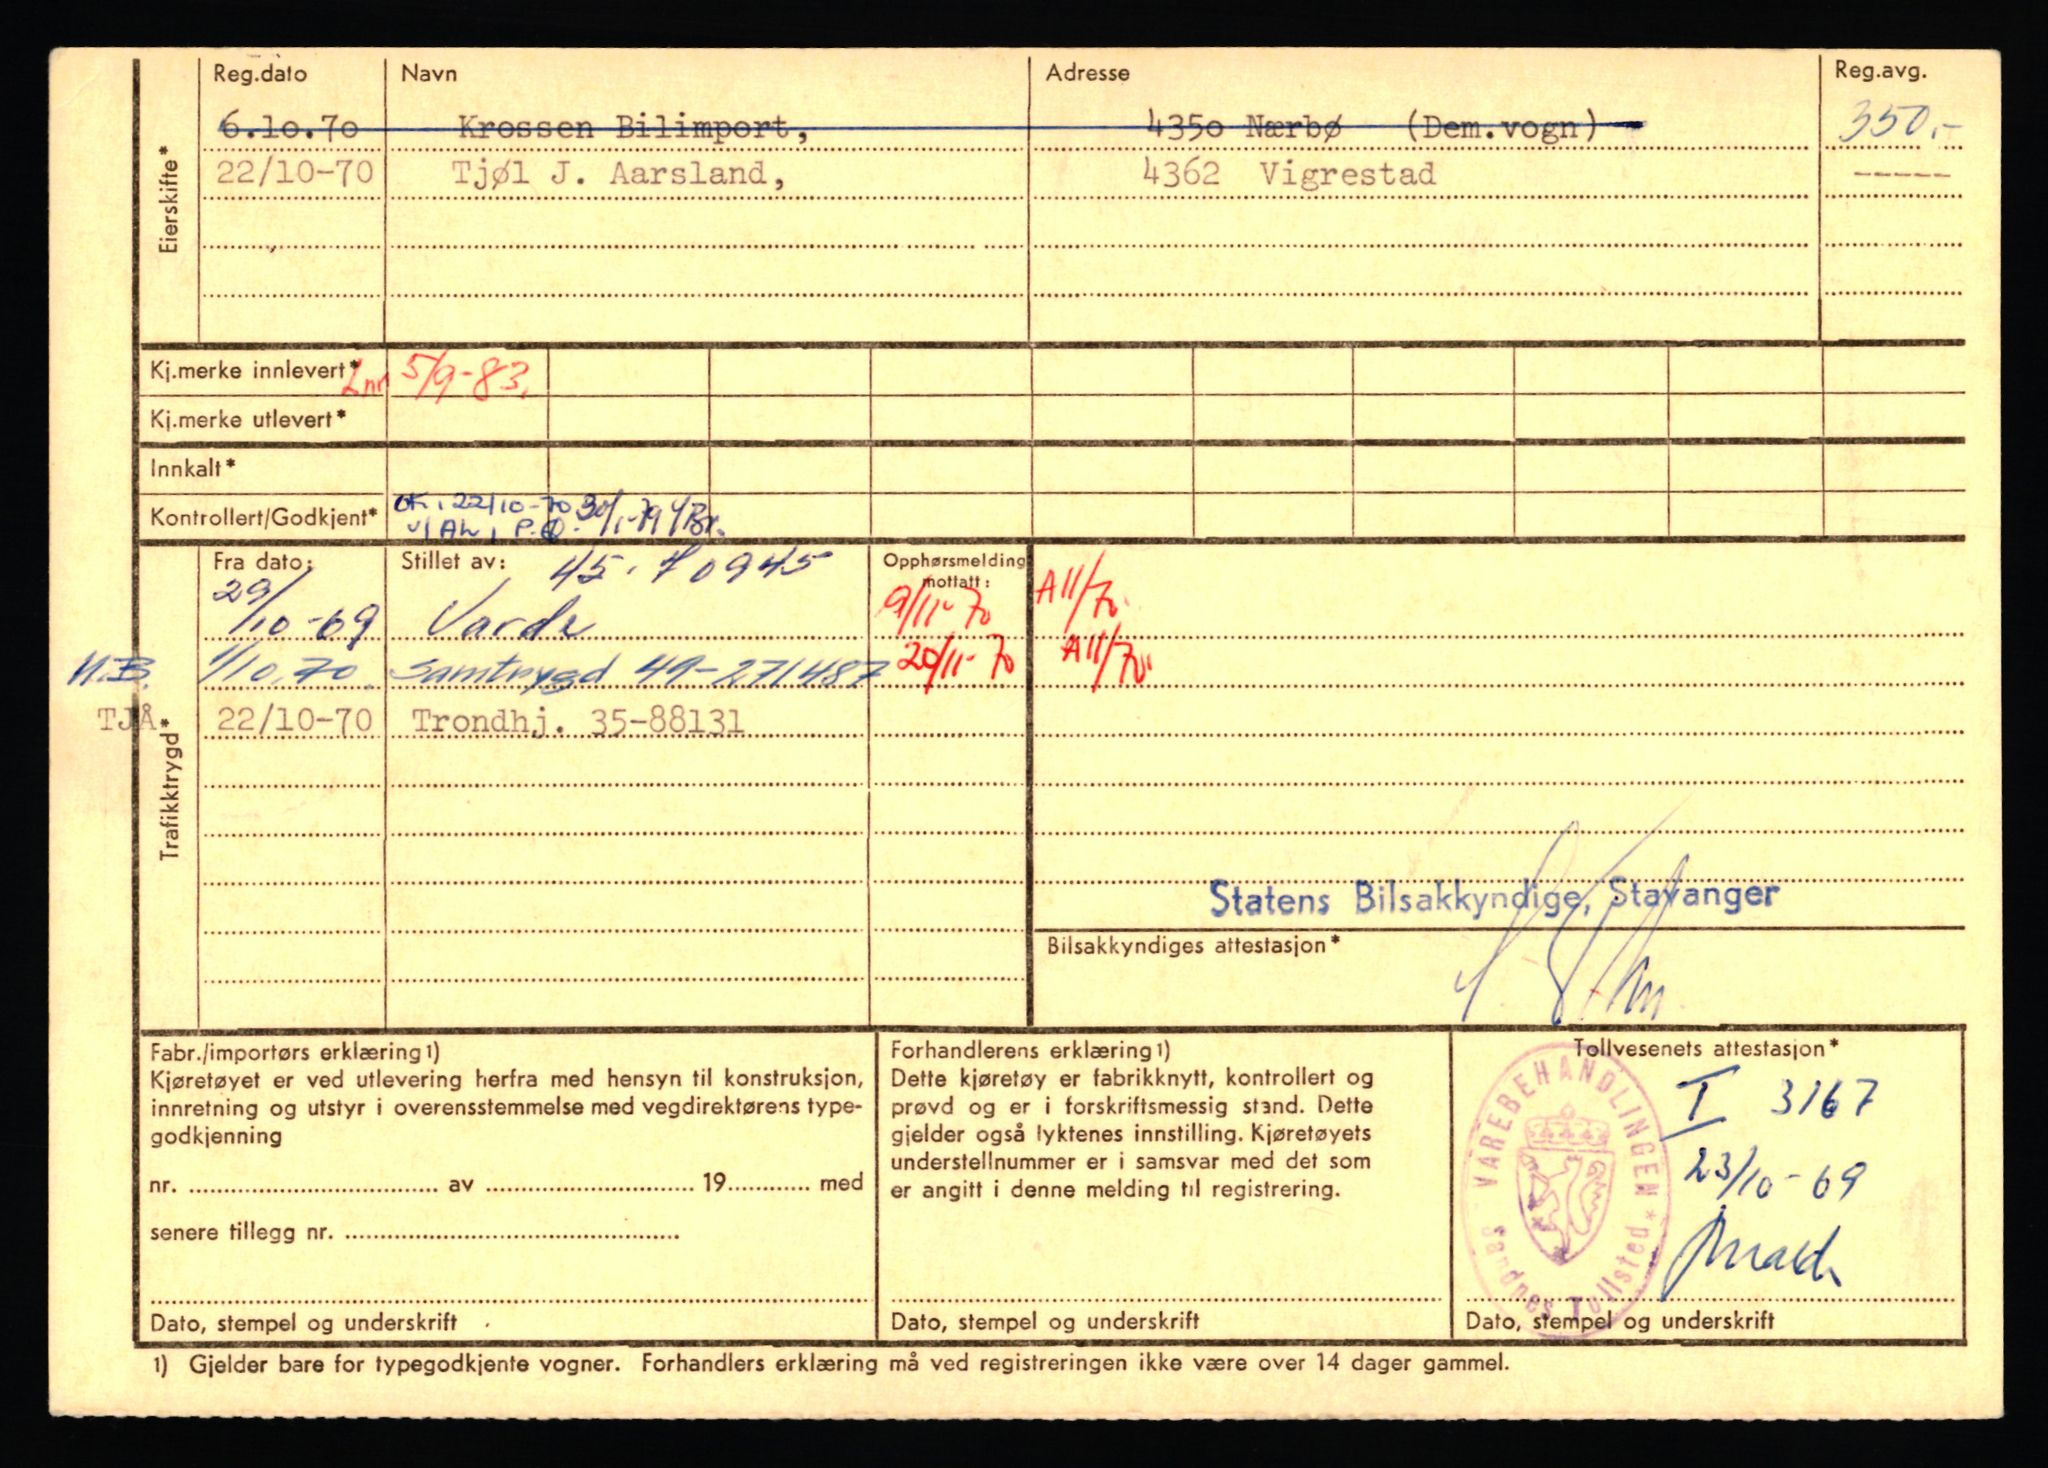 Reg.dato Navn Adresse Reg.avg.
6.10.70 Krossen Bilimport, 4350 Nærbø (Dem.vogn) 350,-
22/10-70 Tjøl J. Aarsland, 4362 Vigrestad -----
Eierskifte*
Kj.merke innlevert* Lnr 5/9-83.
Kj.merke utlevert*
Innkalt*
Kontrollert/Godkjent* OK. 22/10-70 30/1-79
Fra dato: Stillet av: 45. 70945 Opphørsmelding mottatt:
29/10-69 Varde 9/11-70 A11/70.
N.B. 1/10.70. Samtrygd 49-271487 20/11-70 A11/70
TJÅ 22/10-70 Trondhj. 35-88131
Trafikktrygd*
Statens Bilsakkyndige, Stavanger
Bilsakkyndiges attestasjon*
Fabr./importørs erklæring1)
Kjøretøyet er ved utlevering herfra med hensyn til konstruksjon,
innretning og utstyr i overensstemmelse med vegdirektørens type-
godkjenning
nr. av 19 med
senere tillegg nr.
Dato, stempel og underskrift
Forhandlerens erklæring1)
Dette kjøretøy er fabrikknytt, kontrollert og
prøvd og er i forskriftsmessig stand. Dette
gjelder også lyktenes innstilling. Kjøretøyets
understellnummer er i samsvar med det som
er angitt i denne melding til registrering.
Dato, stempel og underskrift
Tollvesenets attestasjon*
I 3167
23/10-69
VAREBEHANDLINGEN * Sandnes Tollsted *
Dato, stempel og underskrift
1) Gjelder bare for typegodkjente vogner. Forhandlers erklæring må ved registreringen ikke være over 14 dager gammel.